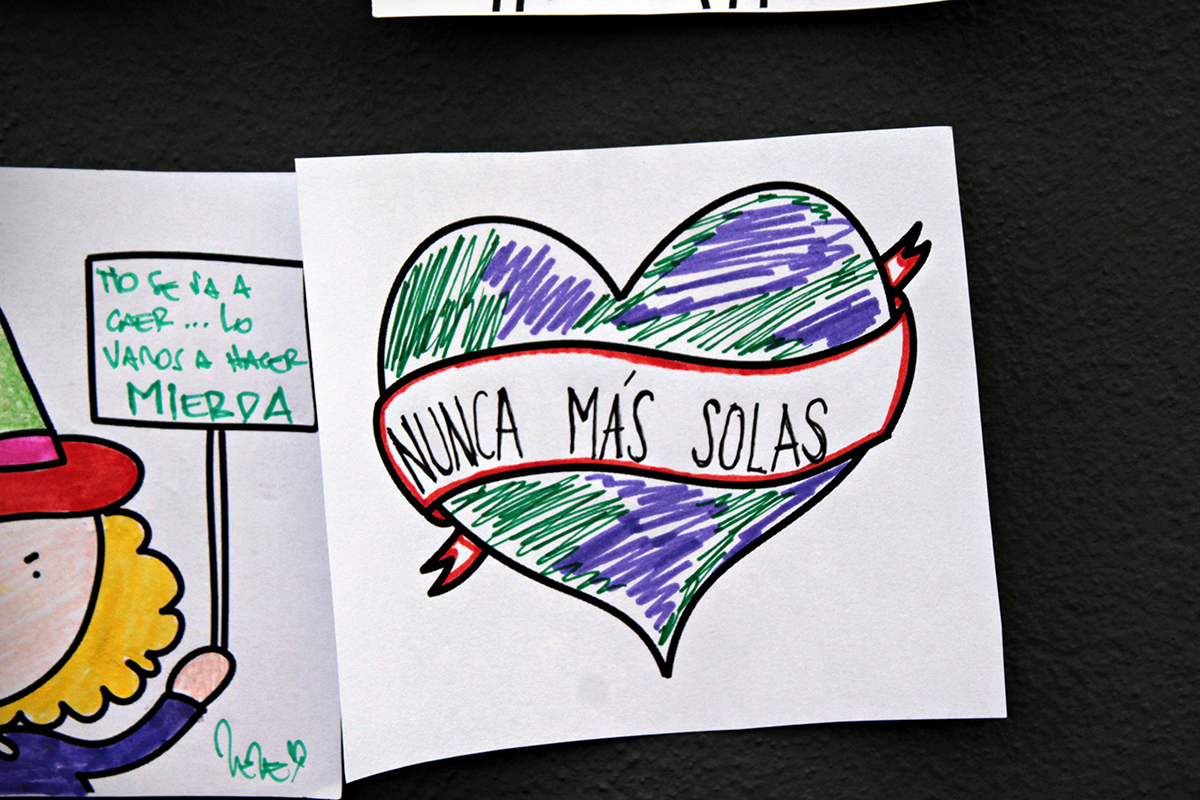 NO SE VA A
CAER... LO
VAMOS A HACER
MIERDA
NUNCA MÁS SOLAS